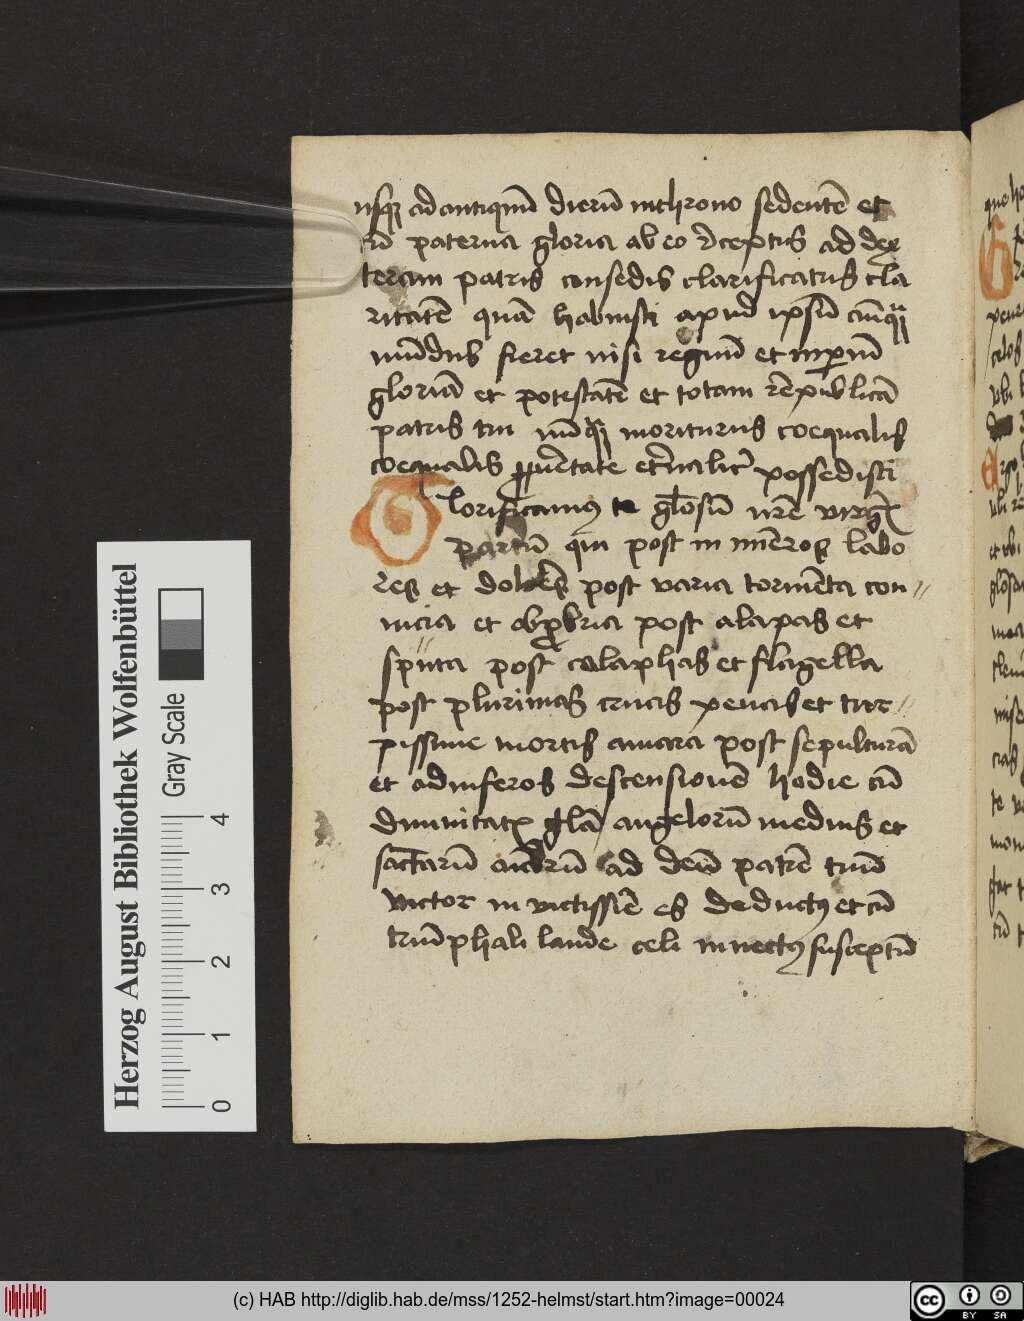 usq3 ad antiquū dierū in throno sedentē et
cū paterna gloria ab eo receptus ad dex
teram patris consedis clarificatus cla
ritatē quā habuisti apud ipsū
mūdus fieret nisi regnū et inperiū
gloriā et potestatē et totam rēpublicā
patris tui nūq moriturus coequalis
coequalis possedisti
Glorificamus te gl̄osū nr̄e virg
partū qui post in nūeros labo
res et dolores post varia tormēta con
uicia et obprobria post alapas et
sputa post colaphas et flagella
post plurimas crucis penas et tur
pissime mortis amara post sepulturā
et ad inferos descensionē hodie cū
diuinitatis gl̄a angelorū medius et
sāctarū aīarū ad deū patrē tuū
victor in victissīe es deductus et cū
triūphali laude celi inuectus susceptū
Herzog August Bibliothek Wolfenbüttel
Gray Scale
0 1 2 3 4
(c) HAB http://diglib.hab.de/mss/1252-helmst/start.htm?image=00024
cc BY SA